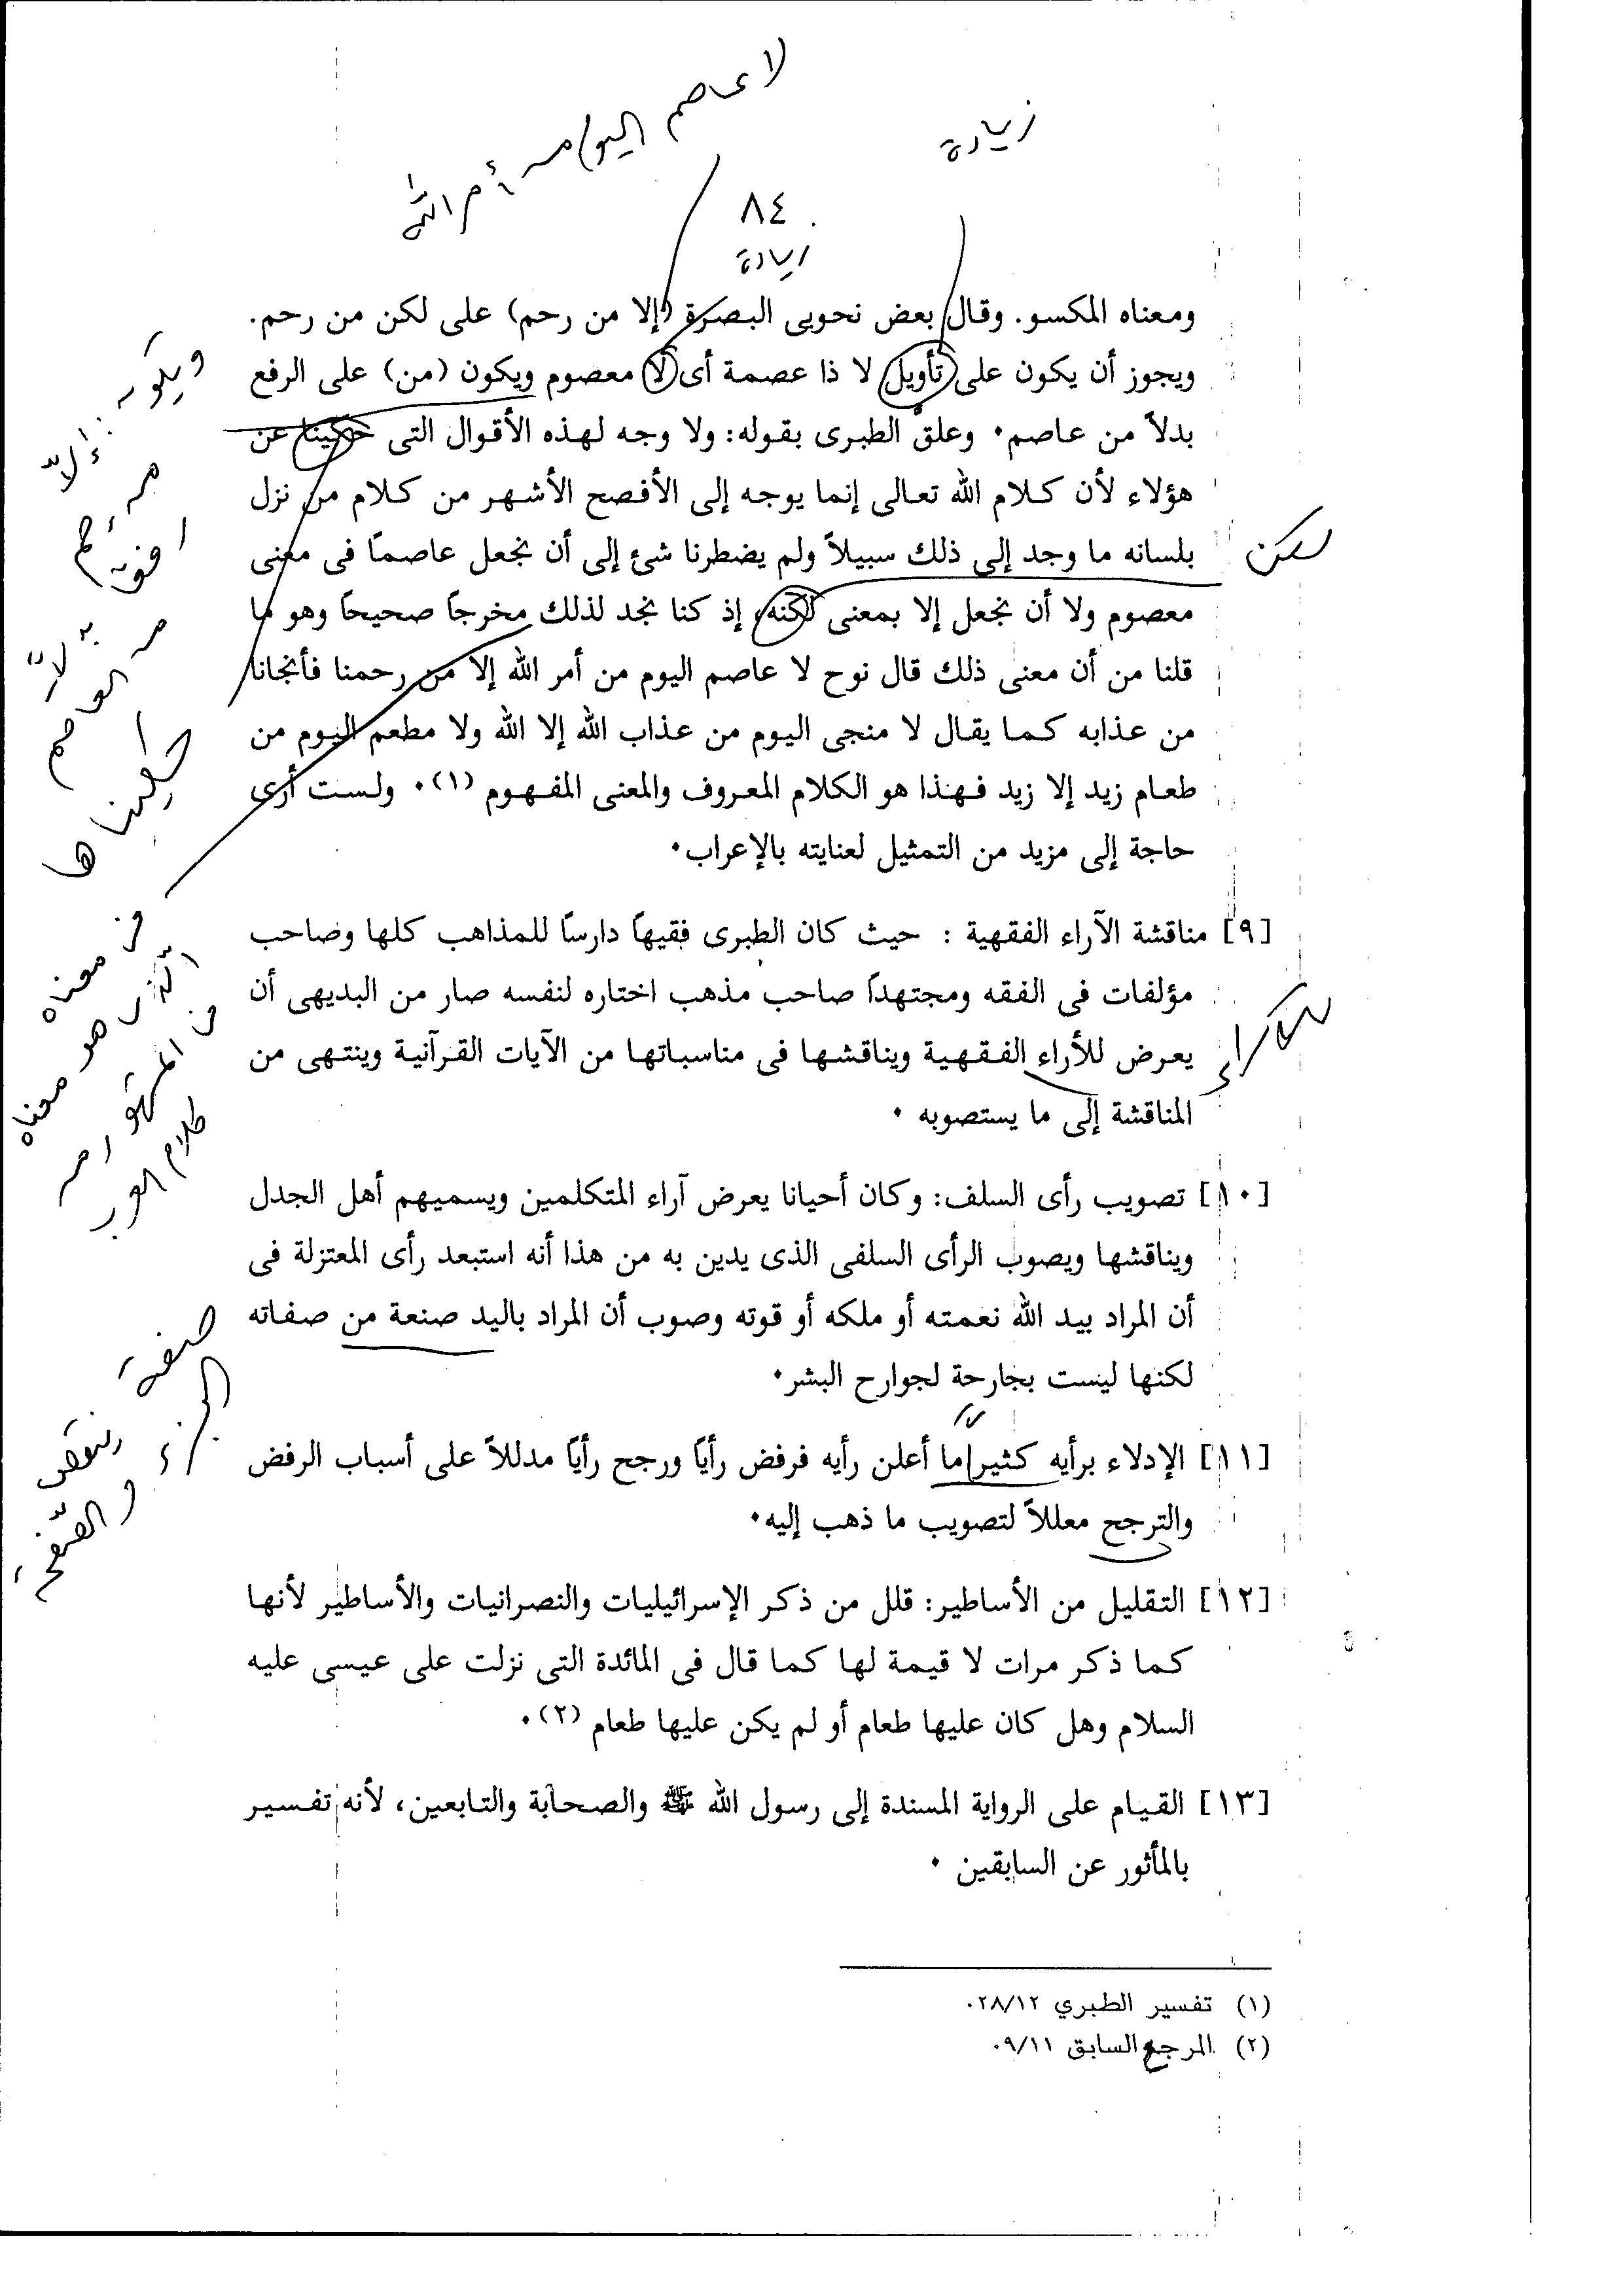 لا عاصم اليوم من أمر الله
زيادة
٨٤
زيادة
ومعناه المكسو. وقال بعض نحويى البصرة (إلا من رحم) على لكن من رحم.
ويجوز أن يكون على تأويل لا ذا عصمة أى لا معصوم ويكون (من) على الرفع
بدلاً من عاصم. وعلق الطبرى بقوله: ولا وجه لهذه الأقوال التى حكينا عن
هؤلاء لأن كلام الله تعالى إنما يوجه إلى الأفصح الأشهر من كلام من نزل
بلسانه ما وجد إلى ذلك سبيلاً ولم يضطرنا شئ إلى أن نجعل عاصمًا فى معنى
معصوم ولا أن نجعل إلا بمعنى لكنه، إذ كنا نجد لذلك مخرجًا صحيحًا وهو ما
قلنا من أن معنى ذلك قال نوح لا عاصم اليوم من أمر الله إلا من رحمنا فأنجانا
من عذابه كما يقال لا منجى اليوم من عذاب الله إلا الله ولا مطعم اليوم من
طعام زيد إلا زيد فهذا هو الكلام المعروف والمعنى المفهوم (١). ولست أرى
حاجة إلى مزيد من التمثيل لعنايته بالإعراب.
[٩] مناقشة الآراء الفقهية : حيث كان الطبرى فقيهًا دارسًا للمذاهب كلها وصاحب
مؤلفات فى الفقه ومجتهدًا صاحب مذهب اختاره لنفسه صار من البديهى أن
يعرض للأراء الفقهية ويناقشها فى مناسباتها من الآيات القرآنية وينتهى من
المناقشة إلى ما يستصوبه .
[١٠] تصويب رأى السلف: وكان أحيانا يعرض آراء المتكلمين ويسميهم أهل الجدل
ويناقشها ويصوب الرأى السلفى الذى يدين به من هذا أنه استبعد رأى المعتزلة فى
أن المراد بيد الله نعمته أو ملكه أو قوته وصوب أن المراد باليد صنعة من صفاته
لكنها ليست بجارحة لجوارح البشر.
[١١] الإدلاء برأيه كثيراما أعلن رأيه فرفض رأيًا ورجح رأيًا مدللاً على أسباب الرفض
والترجح معللاً لتصويب ما ذهب إليه.
[١٢] التقليل من الأساطير: قلل من ذكر الإسرائيليات والنصرانيات والأساطير لأنها
كما ذكر مرات لا قيمة لها كما قال فى المائدة التى نزلت على عيسى عليه
السلام وهل كان عليها طعام أو لم يكن عليها طعام (٢).
[١٣] القيام على الرواية المسندة إلى رسول الله ﷺ والصحابة والتابعين، لأنه تفسير
بالمأثور عن السابقين .
(١) تفسير الطبري ٢٨/١٢.
(٢) المرجع السابق ٩/١١.
لكن
ويكون
إلا
من
العاصم
حكيناها
فى معناه
الذى هو معناه
فى المشهور من
كلام العرب
صفة